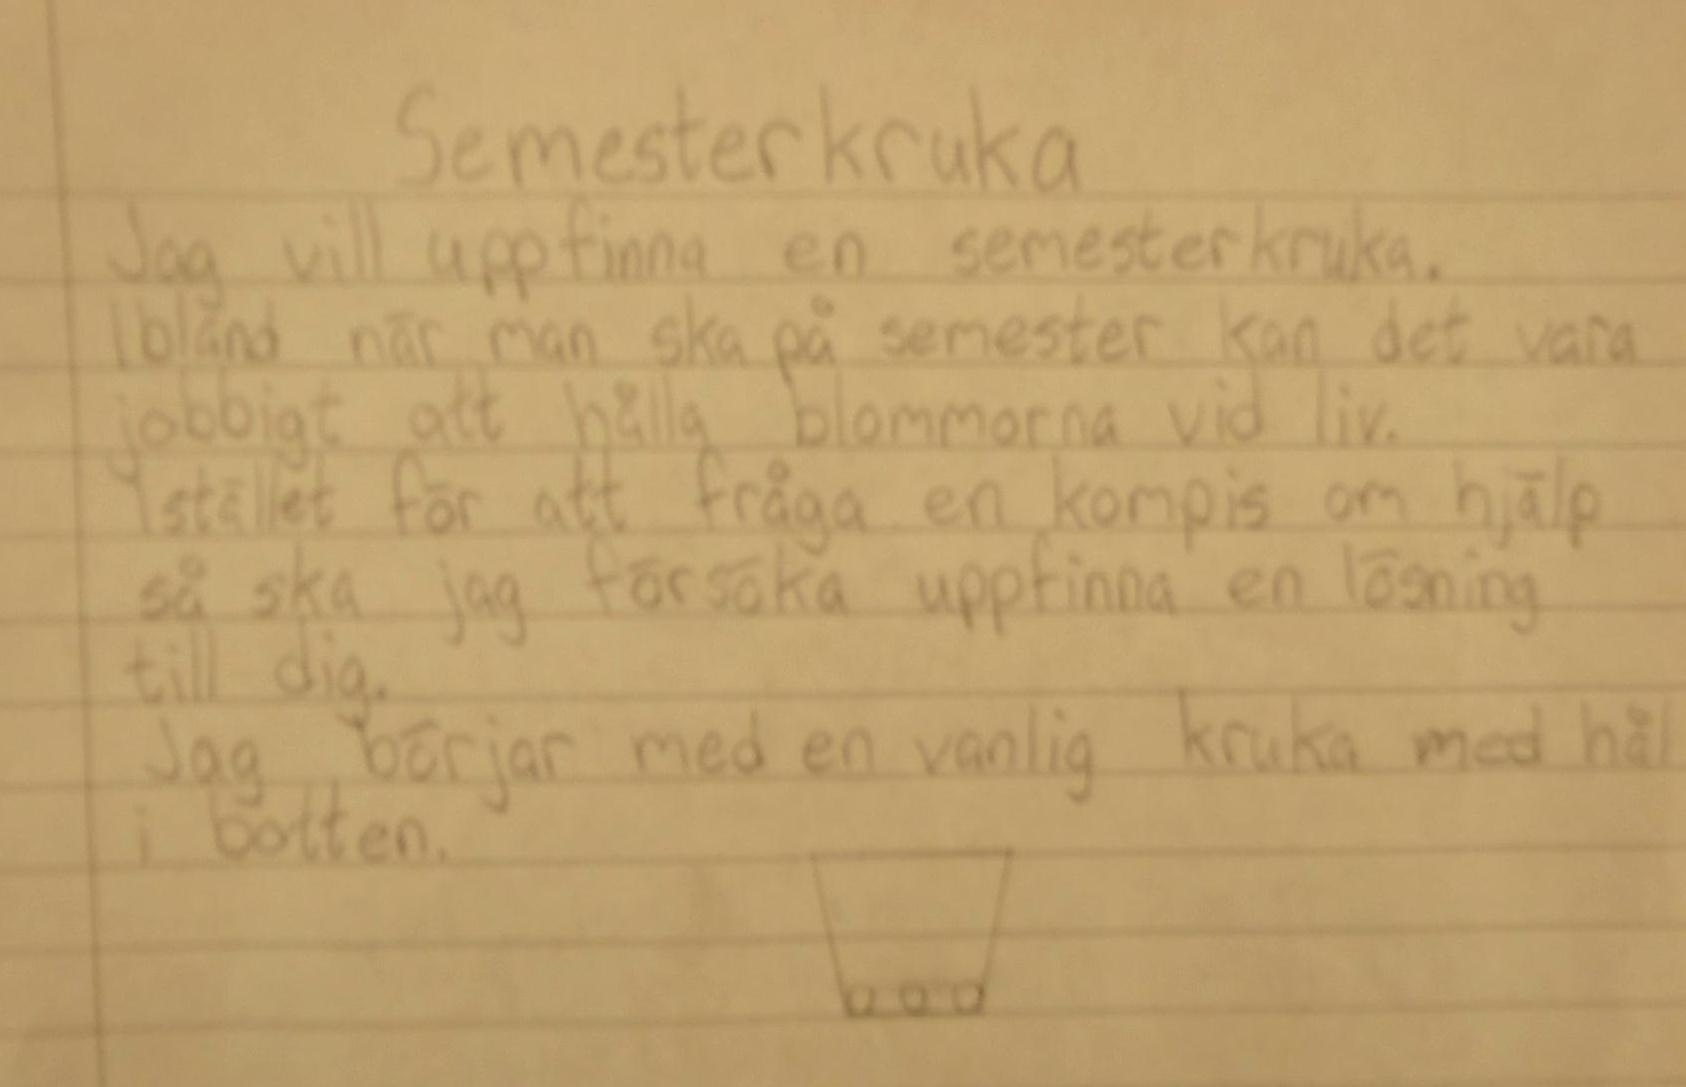 Semesterkruka
Jag vill uppfinna en semesterkruka.
Ibland när man ska på semester kan det vara
jobbigt att hålla blommorna vid liv.
Istället för att fråga en kompis om hjälp
så ska jag försöka uppfinna en lösning
till dig.
Jag börjar med en vanlig kruka med hål
i botten.